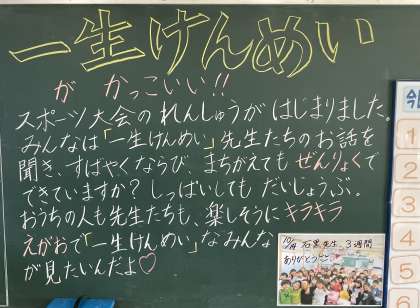 一生けんめい
が かっこいい!!
スポーツ大会のれんしゅうがはじまりました。
みんなは「一生けんめい」先生たちのお話を
聞き、すばやくならび、まちがえてもぜんりょくで
できていますか?しっぱいしてもだいじょうぶ。
おうちの人も先生たちも、楽しそうにキラキラ
えがおで「一生けんめい」なみんな
が見たいんだよ♡
石黒先生 3週間
ありがとう
1
2
3
4
5